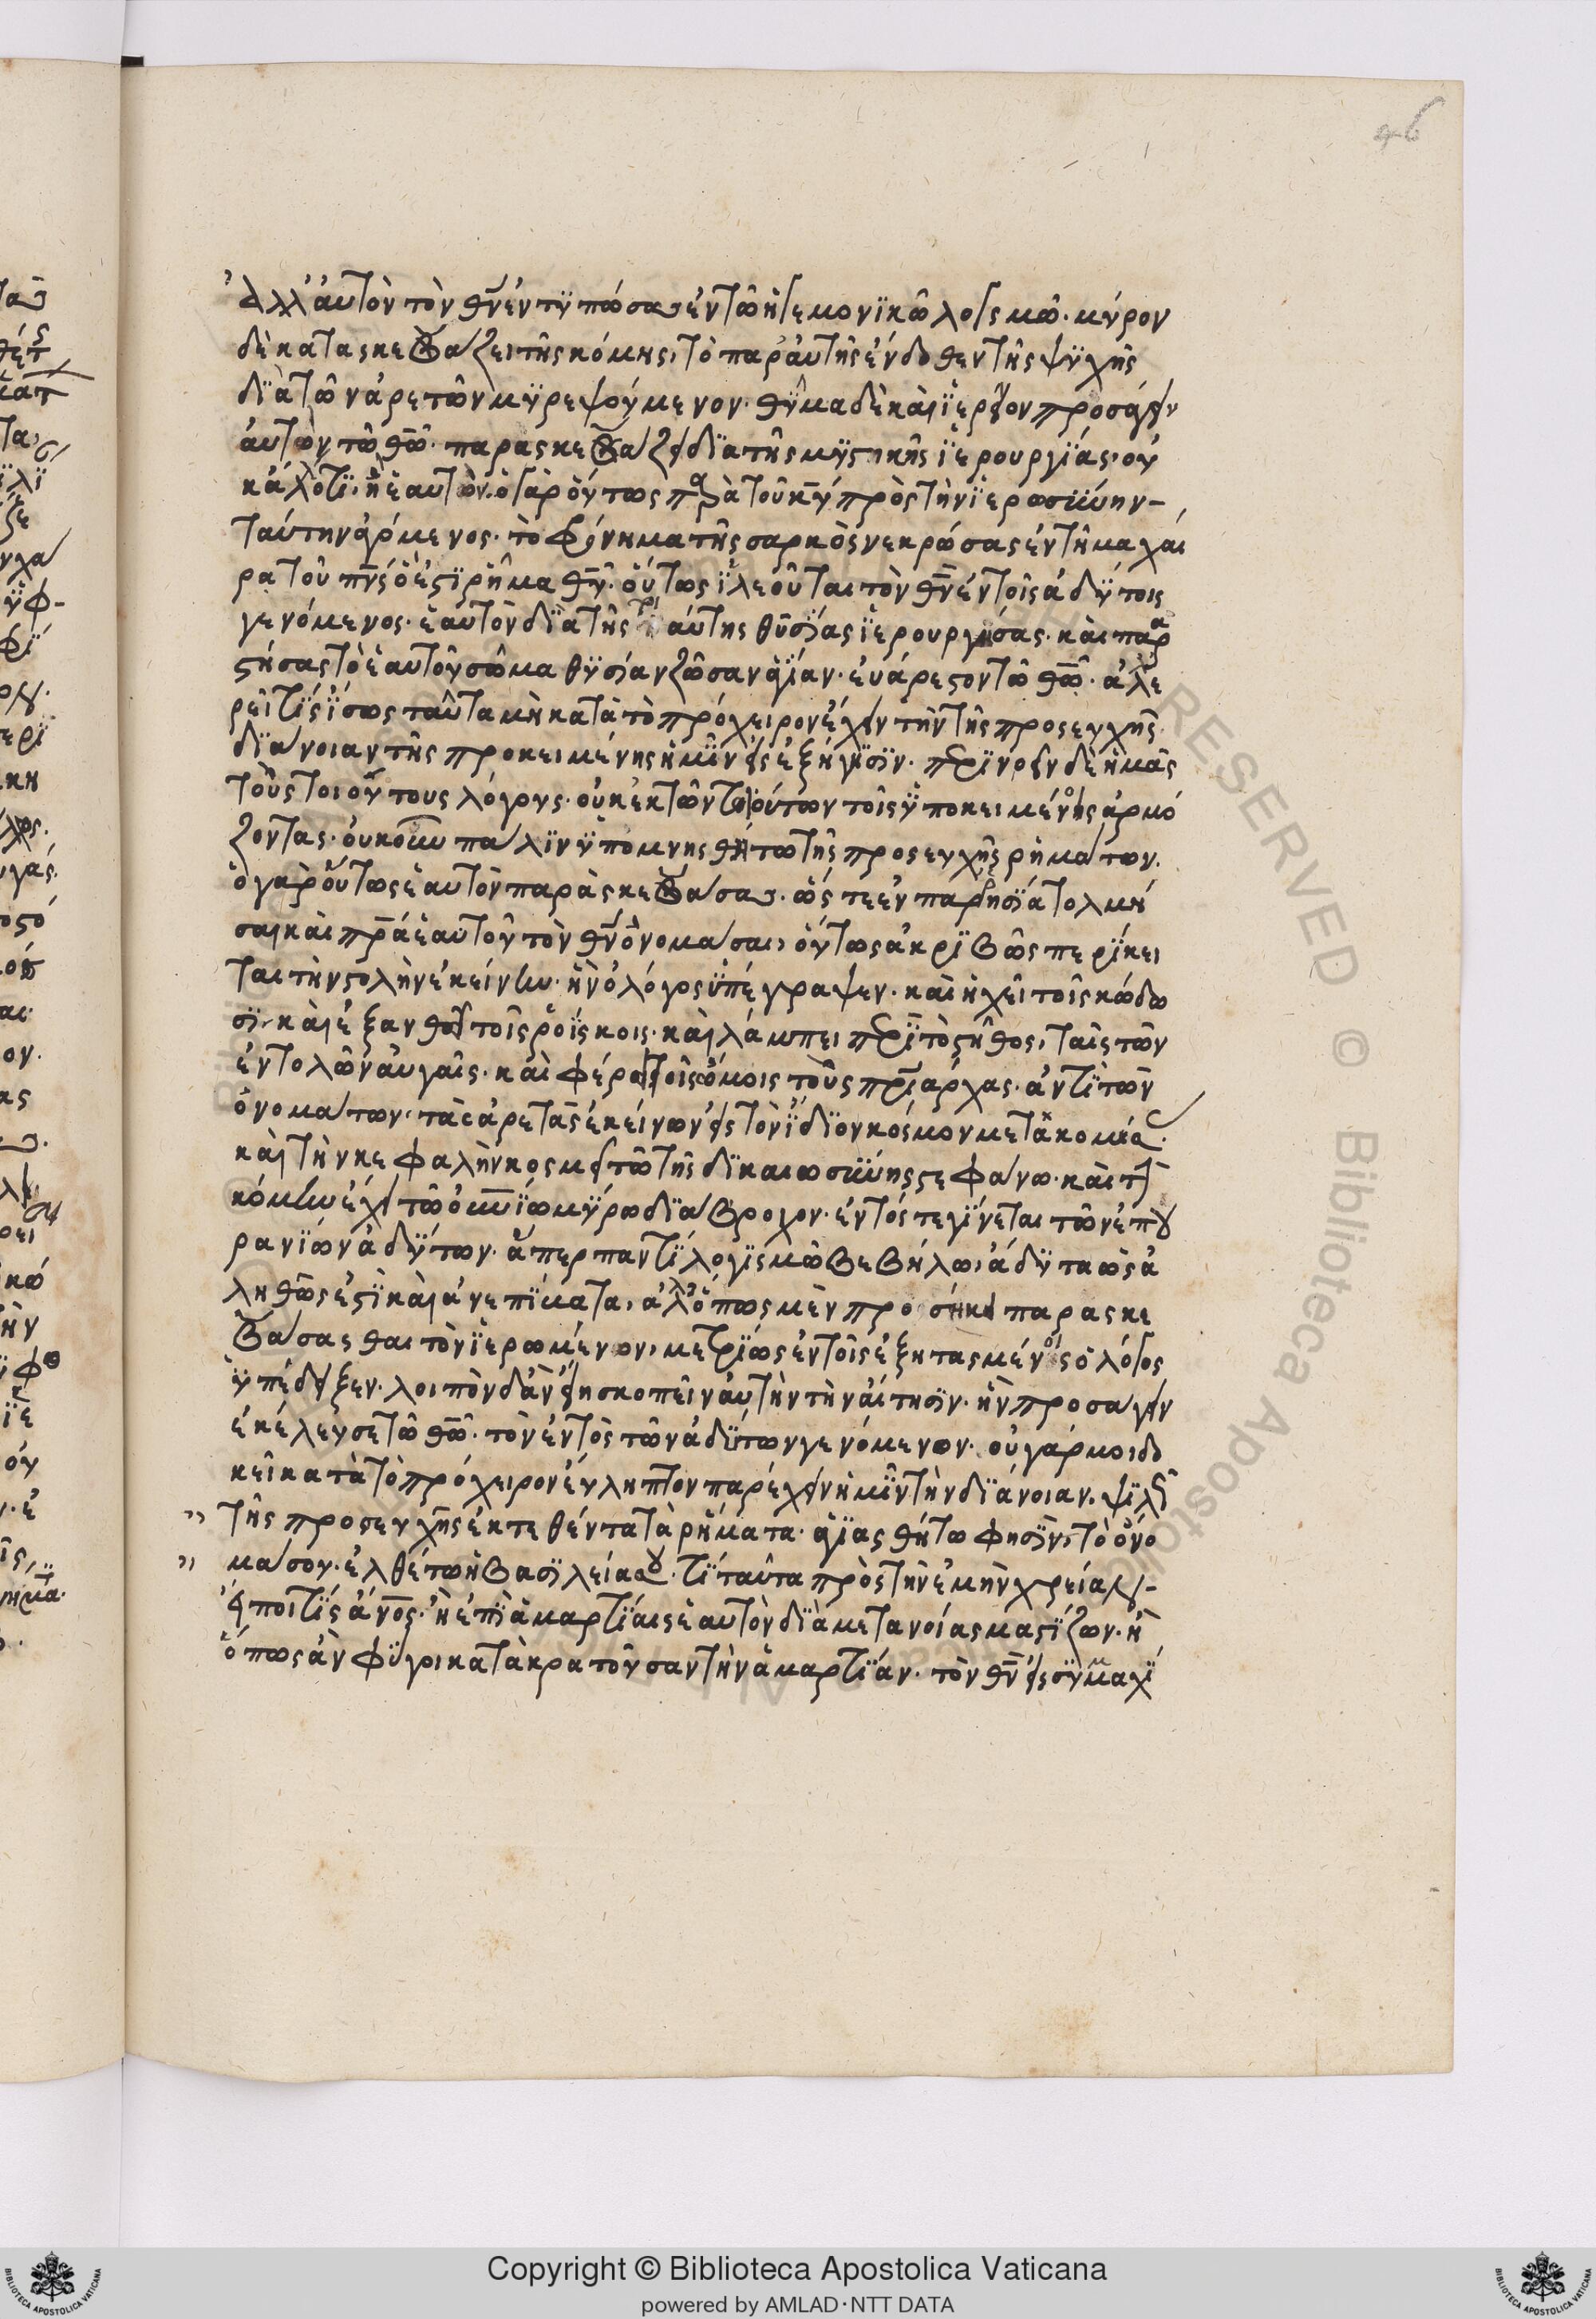 46
ἀλλ' αὐτὸν τὸν θν̅ ἐντϋπώσας ἐν τῶ ἡγεμονϊκῶ λογισμῶ. μύρον
δὲ κατασκευάζει τῆς κόμης, τὸ παρ' αὐτῆς ἔνδοθεν τῆς ψϋχῆς
δϊὰ τῶν ἀρετῶν μϋρεψούμενον. θῦμα δὲ καὶ ϊερεῖον προσάγειν
αὐτῶν τῶ θω̅. παρασκευάζει δϊὰ τῆς μϋστικῆς ϊερουργϊας, οὐ
κ' ἄλλό τϊ, ἢ ἑαυτὸν. ὁ γὰρ οὕτως παρὰ τοῦ κυ̅ πρὸς τὴν ϊερωσύνην
ταύτην ἀγόμενος. τὸ φρόνημα τῆς σαρκὸς νεκρώσας ἐν τῆ μαχαί
ρα τοῦ πνς̅ ὅ ἐστϊ ρῆμα θυ̅. οὕτως ϊλεοῦται τὸν θν̅ ἐν τοῖς ἀδύτοις
γενόμενος. ἑαυτὸν δϊὰ τῆς τοιαύτης θϋσϊας ϊερουργήσας. καὶ παρα
στήσας τὸ ἑαυτοῦ σῶμα θϋσίαν ζῶσαν ἁγίαν. εὐάρεστον τῶ θω̅. ἀλλ' ἐ
ρεῖ τϊς ϊσως ταῦτα μὴ κατὰ τὸ πρόχειρον ἔχειν τὴν τῆς προσευχῆς
δϊάνοιαν τῆς προκειμένης ἡμῖν εἰς ἐξήγησϊν. περϊνοεῖν δὲ ἡμᾶς
τοὺς τοιούτους λόγους. οὐκ ἐκ τῶν τοιούτων τοῖς ϋποκειμένοις ἁρμό
ζοντας. οὐκοῦν παλϊν ϋπομνησθήτω τῆς προσευχῆς ρημάτων.
ὁ γὰρ οὕτως ἑαυτὸν παρὰσκευάσας. ὥς τε ἐν παρρησϊα τολμῆ
σαι καὶ πρα̅ ἑαυτοῦ τὸν θν̅ ὀνομάσαι, οὕτως ἀκρϊβῶς περϊκει
ται τὴν στολὴν ἐκείνην. ἣν ὁ λόγος ϋπέγραψεν. καὶ ἠχεῖ τοῖς κώδω
σϊ, καὶ ἐξανθεῖ τοῖς ροϊσκοις. καὶ λάμπει περϊ τὸ στῆθος, ταῖς τῶν
ἐντολῶν αὐγαῖς. καὶ φέρει τοῖς ὤμοις τοὺς πριάρχας. ἀντϊ τῶν
ὀνομάτων, τὰς ἀρετὰς ἐκείνων εἰς τὸν ϊδϊον κόσμον μετὰκομίσας.
καὶ τὴν κεφαλὴν κοσμεῖ τῶ τῆς δϊκαιωσύνης στεφάνω. καὶ τὴν
κόμην ἔχει τῶ οὐνϊω μϋρω δϊάβροχον. ἐντός τε γϊνεται τῶν ἐπου
ρανϊων ἀδύτων. ἅπερ παντϊ λογισμῶ βεβήλω, ἄδυτα ὡς ἀ
ληθῶς ἐστϊ καὶ ἀνεπϊματα, ἀλλ' ὅπως μὲν προσήκει παρασκε
υάσασθαι τὸν ϊερωμένον, μετρϊως ἐν τοῖς ἐξητασμένοις ὁ λόγος
ϋπέδειξεν. λοιπὸν δ' ἂν εἴη σκοπεῖν αὐτὴν τὴν αἴτησϊν. ἣν προσάγειν
ἐκέλευσε τῶ θω̅. τὸν ἐντὸς τῶν ἀδύτων γενόμενον. οὐ γάρ μοι δο
κεῖ κατὰ τὸ πρόχειρον εὔληπτον παρέχειν ἡμῖν τὴν δϊάνοιαν. ψϊλῶς
τῆς προσευχῆς ἐκτεθέντα τὰ ρήματα. ἁγϊασθήτω φησϊν, τὸ ὄνο
μά σου. ἐλθέτω ἡ βασϊλεία σου. τϊ ταῦτα πρὸς τὴν ἐμὴν χρείαν,
εἴποι τϊς ἄνος̅. ἢ ἐπϊ ἁμαρτϊαις ἑαυτὸν δϊὰ μετανοίας μαστϊζων. ἢ
ὅπως ἂν φύγοι κατὰκρατοῦσαν τὴν ἁμαρτϊαν. τὸν θν̅ εἰς συμμαχϊ
Copyright © Biblioteca Apostolica Vaticana
powered by AMLAD·NTT DATA